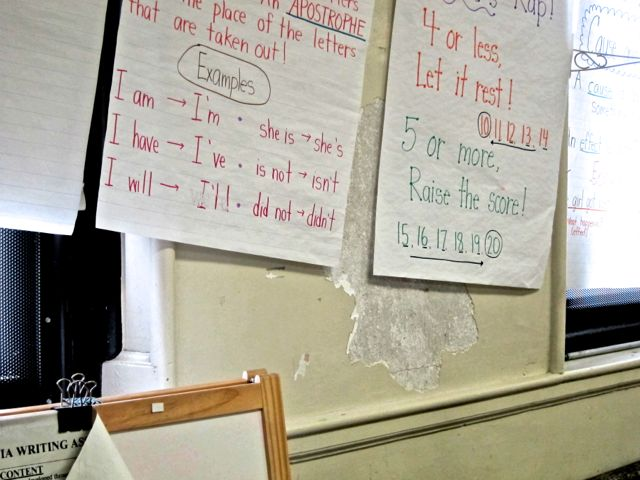 An APOSTROPHE
the place of the letters
that are taken out!
Examples
I am → I'm • she is → she's
I have → I've • is not → isn't
I will → I'll • did not → didn't
Rap!
4 or less,
Let it rest!
10 11. 12. 13. 14
5 or more,
Raise the score!
15. 16. 17. 18. 19. 20
Cause
A cause
effect
IA WRITING AS
CONTENT